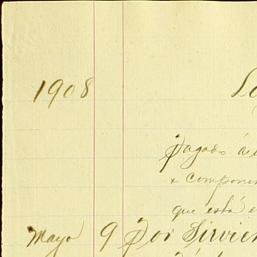 1908
pagado
x componer
que está
Mayo 9 Por Sirvien